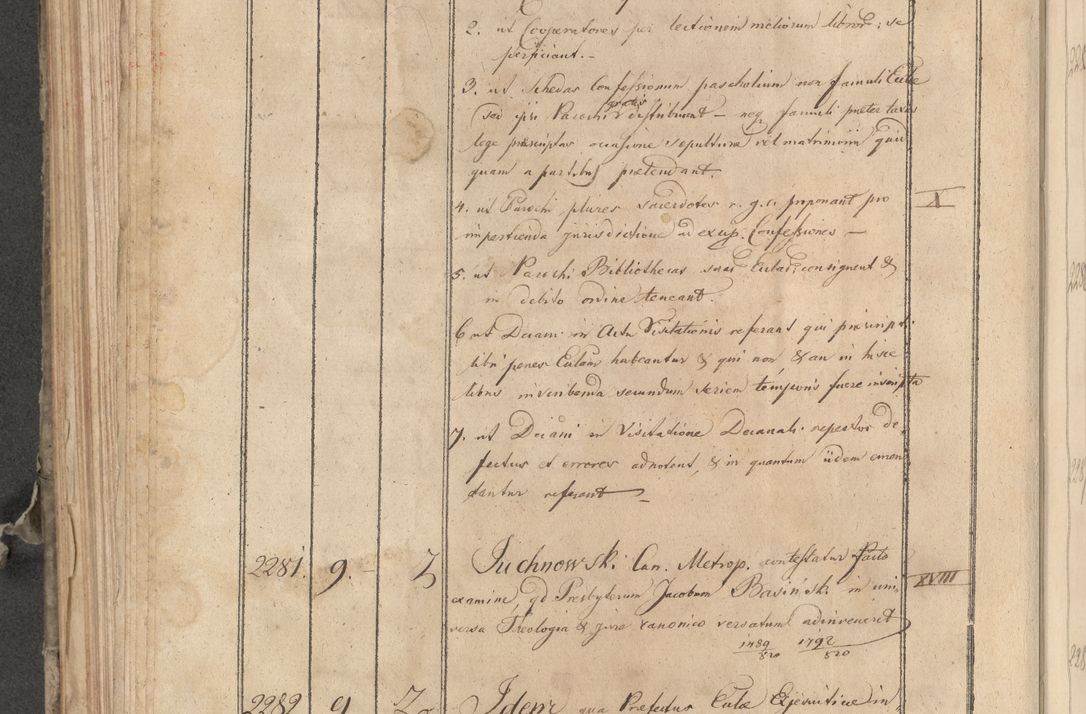 2. ut Cooperatores per lectionem meliorum libror: se
perficiant. -
3. ut Schedas Confessionum paschalium non famuli Eccle
sed ipsi Parochi gratis distribuant - neq famuli præter taxas
lege præscriptas occasione sepulturæ vel matrimonii quid
quam a partibus prætendant.
4. ut Parochi plures sacerdotes r. g. c. proponant pro X
impertienda jurisdictione ad excip. Confessiones —
5. ut Parochi Bibliothecas suas Eccles: consignent &
in debito ordine teneant.
6 ut Decani in Actu Visitationis referant qui præscripti
libri penes Eccles habeantur & qui non & an in hisce
libris inscribenda secundum seriem temporis fuere inscripta
7. ut Decani in Visitatione Decanali repertos de
fectus et errores adnotent, & in quantum iidem emen
dantur referant —
2281. 9. - Z Juchnowski Can. Metrop. contestatur facto XVIII
examine, qd Presbyterum Jacobum Basiński in uni
versa Theologia & jure canonico versatum adinvenerit
1489/820 1792/820
2282 9 Z Idem qua Præfectus Eccle in